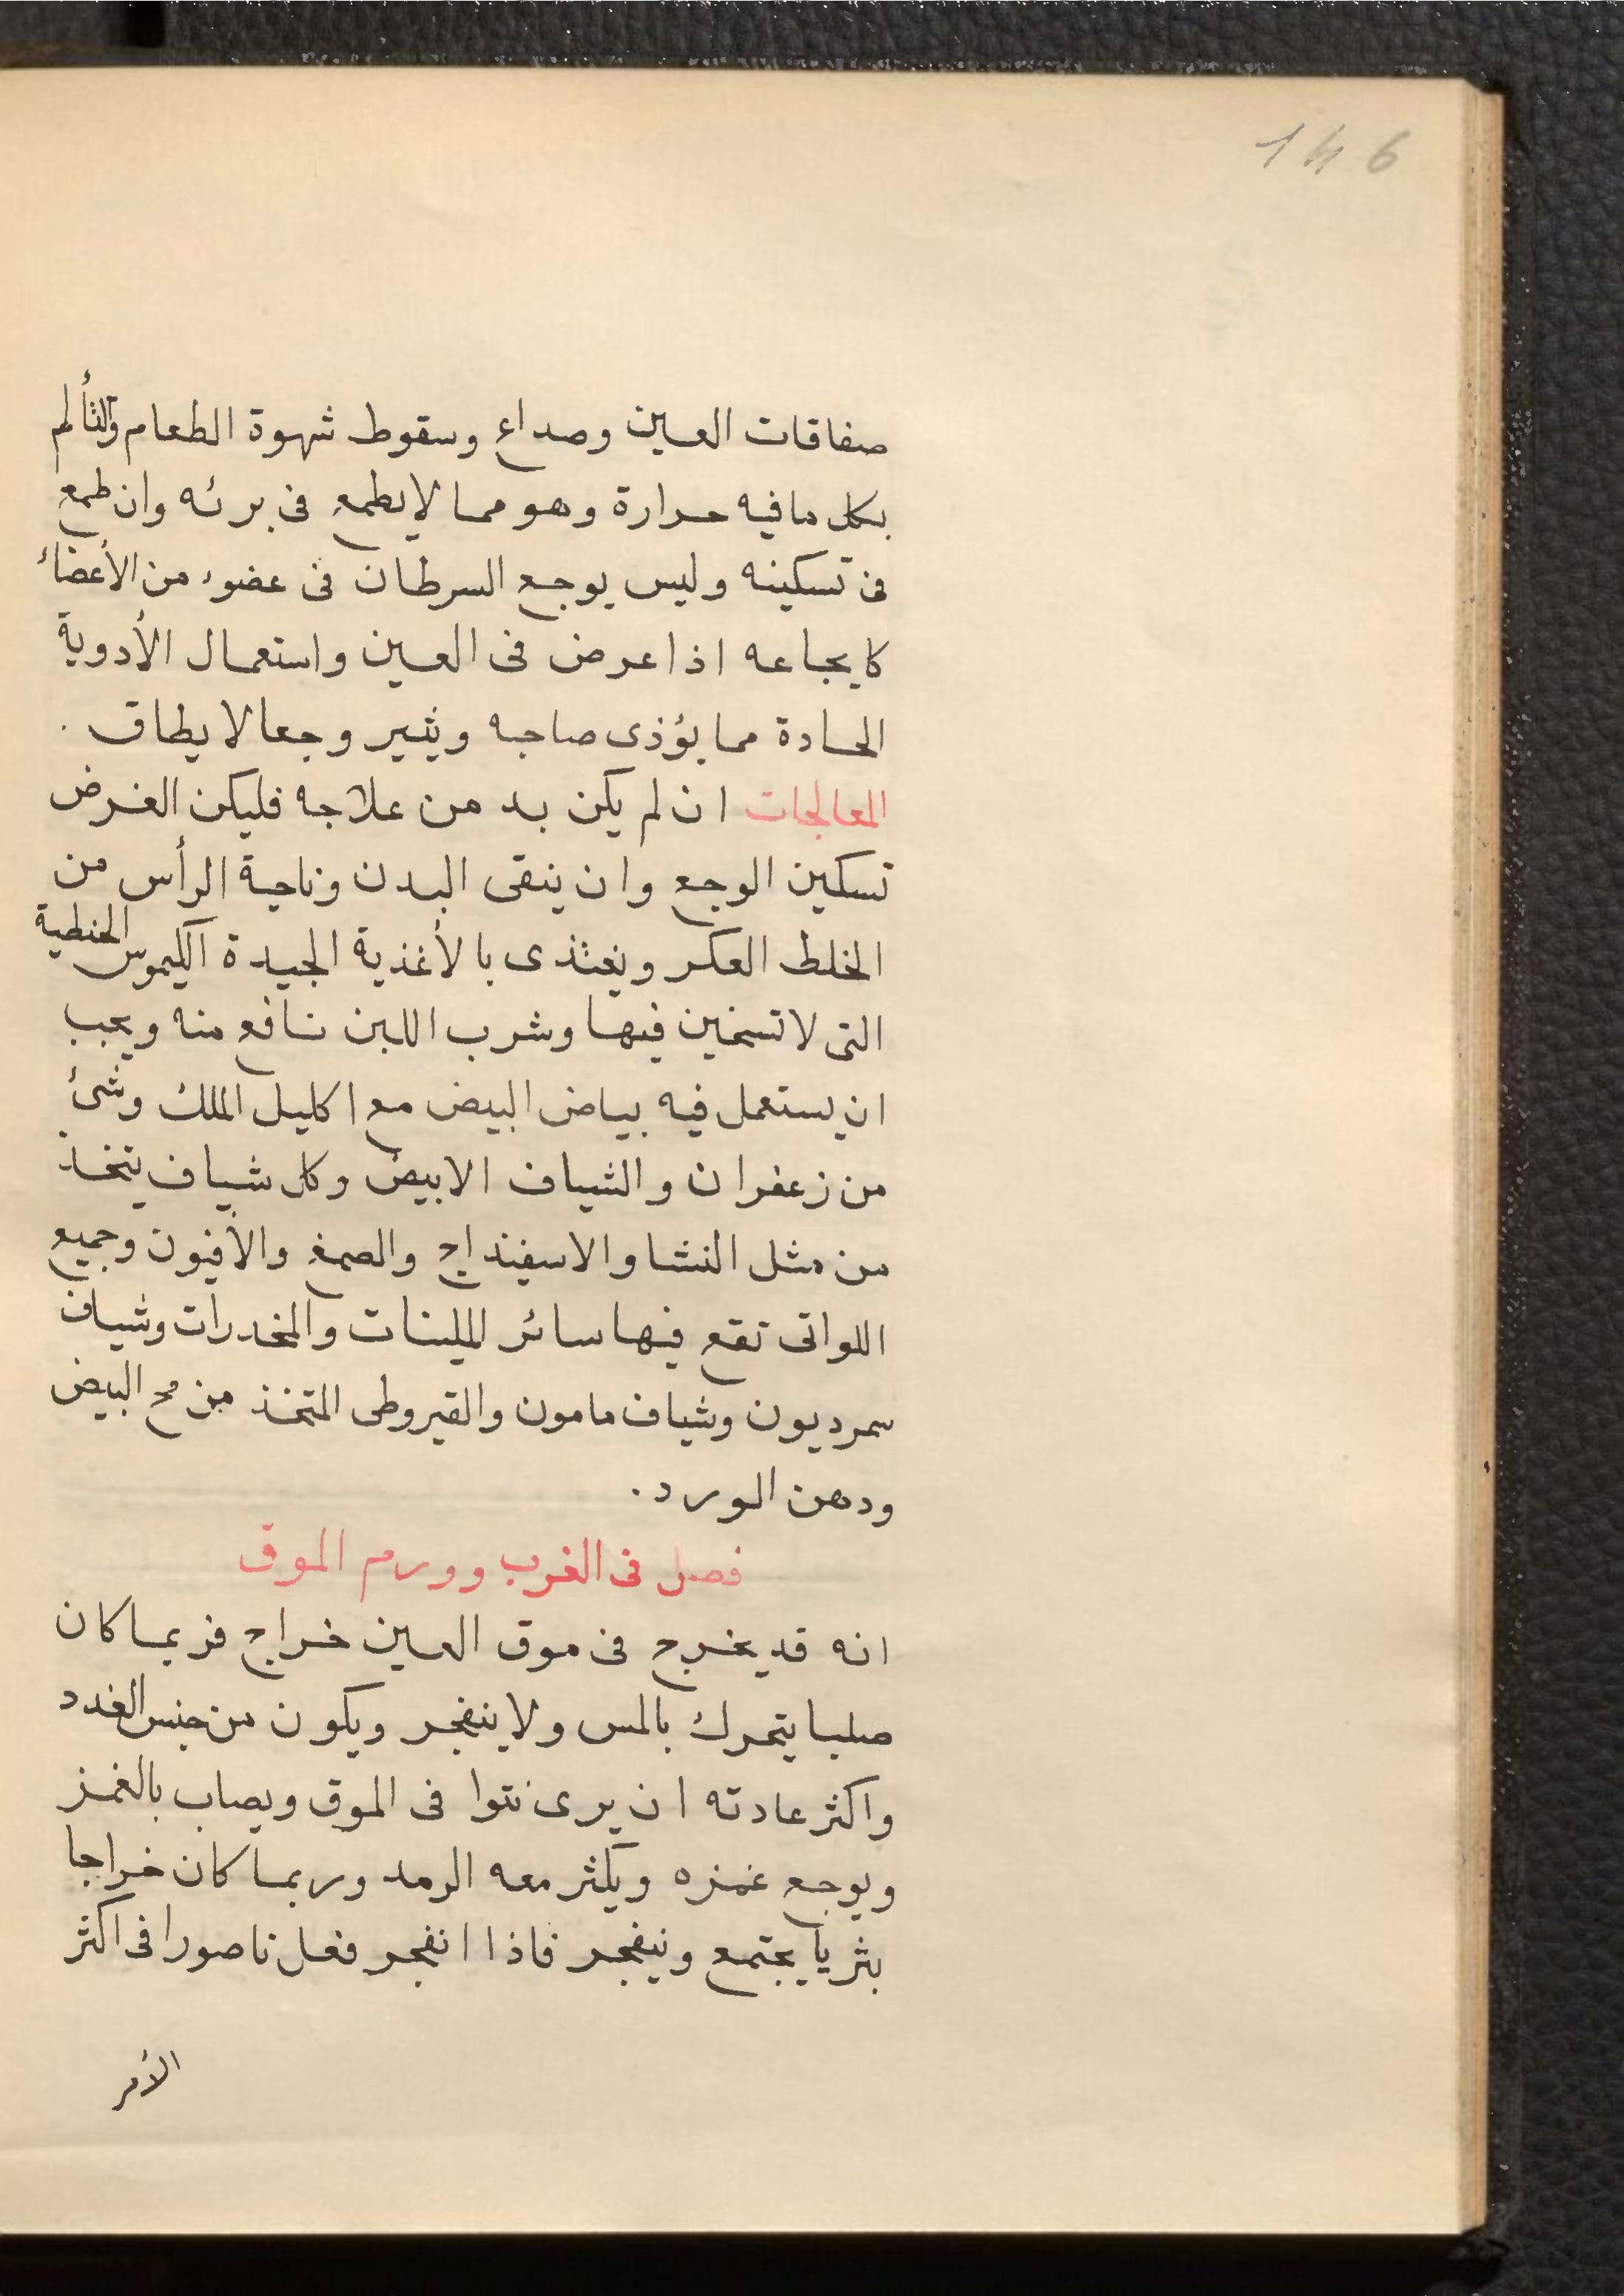 146
صفاقات العين وصداع وسقوط شهوة الطعام والتألم
بكل مافيه حرارة وهو مما لايطمع فى برئه وان طمع
فى تسكينه وليس يوجع السرطان فى عضوء من الأعضاء
كايجاعه اذا عرض فى العين واستعمال الأدوية
الحادة مما يؤذى صاحبه ويثير وجعا لا يطاق .
المعالجات ان لم يكن بد من علاجه فليكن الغرض
تسكين الوجع وان ينقى البدن وناحية الرأس من
الخلط العكر ويغتذى بالأغذية الجيدة الكيموس الحنطية
التى لاتسخين فيها وشرب اللبن نافع منه ويجب
ان يستعمل فيه بياض البيض مع اكليل الملك وشئ
من زعفران والشياف الابيض وكل شياف يتخذ
من مثل النشا والاسفينداج والصمغ والأفيون وجميع
اللواتى تقع فيها سائر المليينات والمخدرات وشياف
سمرديون وشياف مامون والقيروطى المتخذ من مح البيض
ودهن الورد .
فصل فى الغرب وورم الموق
انه قد يخرج فى موق العين خراج فربما كان
صلبا يتحرك بالمس ولا ينفجر ويكون من جنس الغدد
واكثر عادته ان يرى نتوا فى الموق ويصاب بالغمز
ويوجع غمزه ويكثر معه الرمد وربما كان خراجا
بثريا يجتمع وينفجر فاذا انفجر فعل ناصورا فى اكثر
الأمر